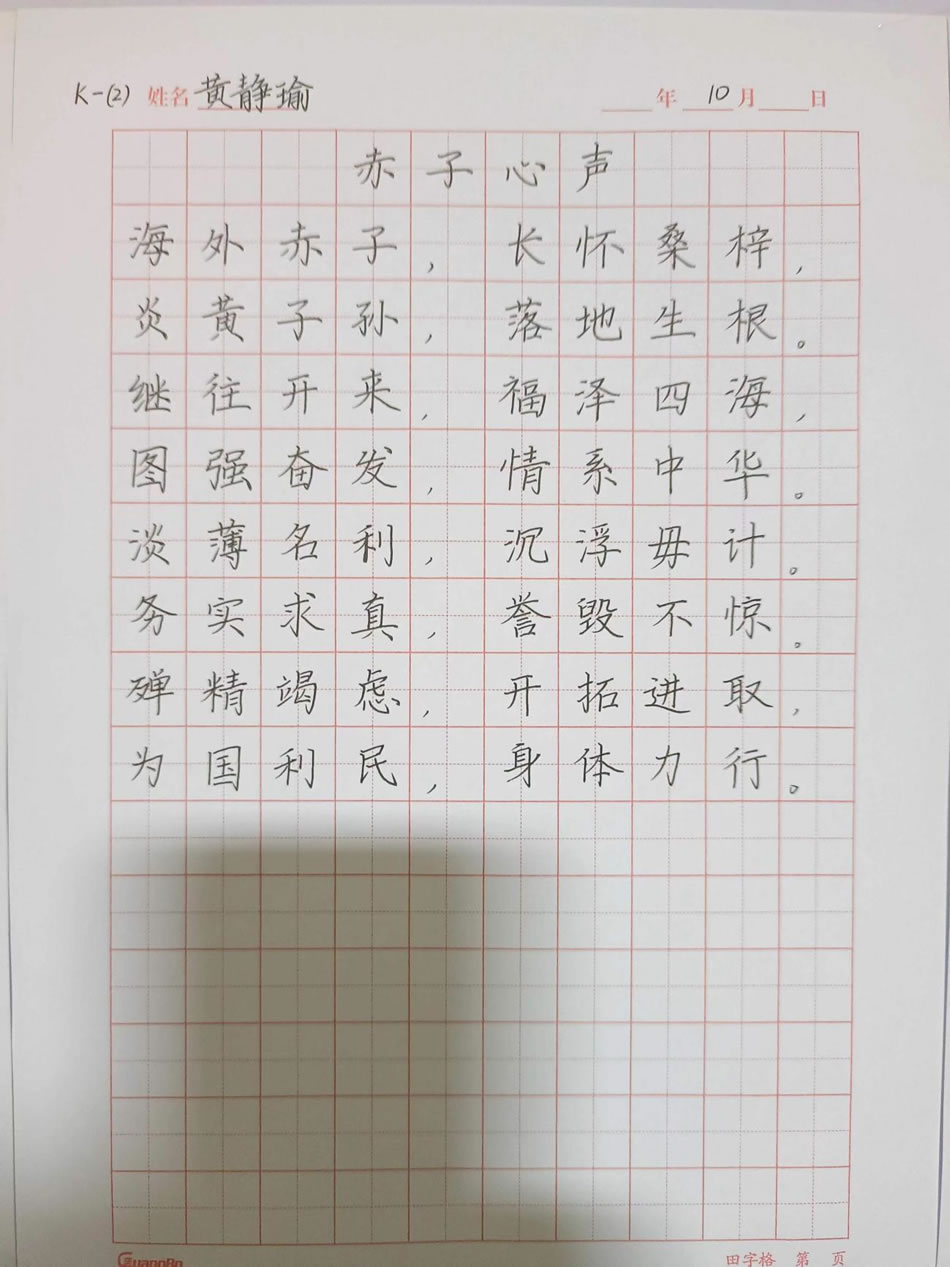 K-(2) 姓名 黄静瑜 年 10 月 日
赤子心声
海外赤子，长怀桑梓，
炎黄子孙，落地生根。
继往开来，福泽四海，
图强奋发，情系中华。
淡薄名利，沉浮毋计。
务实求真，誉毁不惊。
殚精竭虑，开拓进取，
为国利民，身体力行。
GuangBo 田字格 第 页